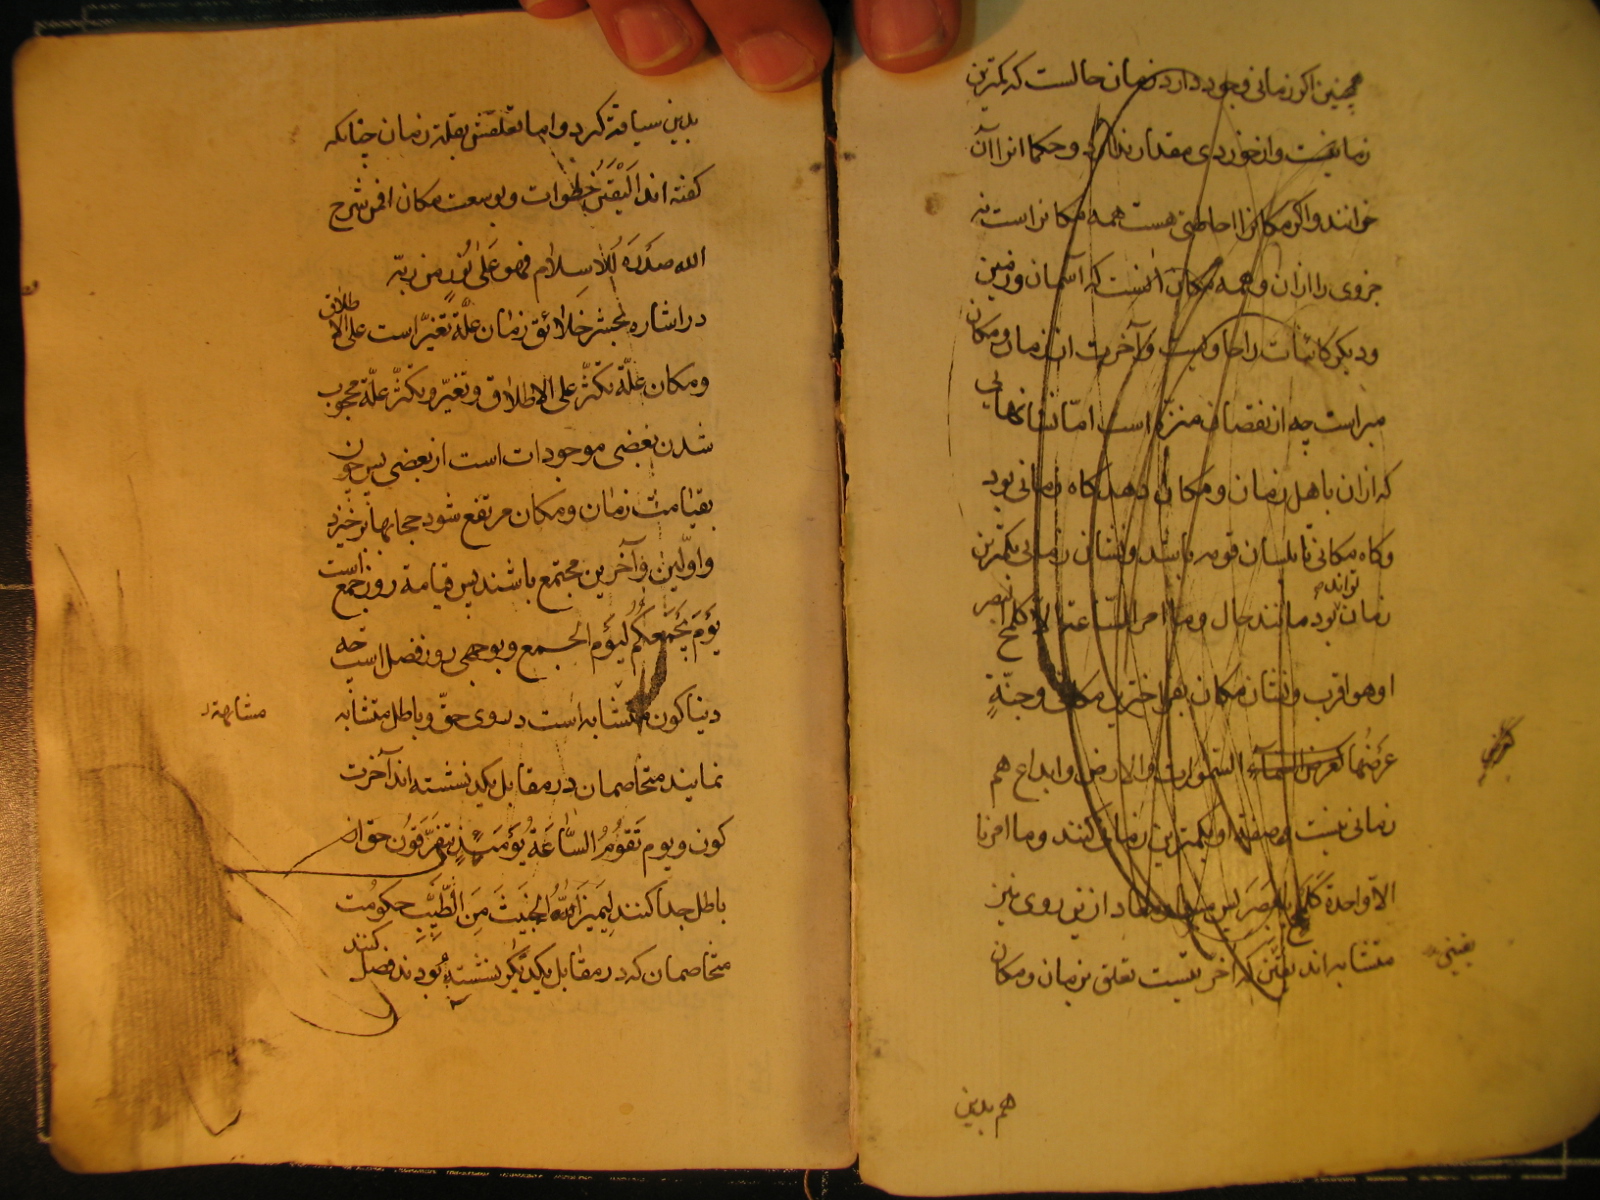 همچنین اکر زمانی وجود دارد زمان حالست که کمترین
زمانیست و از خوردی مقدار ندارد و حکما انرا آن
خوانند و اکر مکانرا احاطتی هست همه مکانراست نه
جزوی را از ان و همه مکان انست که آسمان و زمین
و دیکر کاینات را حاویست و آخرت از زمان و مکان
مبراست چه از نقصان منزه است اما نشانهایی
که از ان باهل زمان و مکان دهند کاه زمانی بود
و کاه مکانی تا بلسان قوم باشد و نشان زمانی بکمترین
زمان تواند بود مانند حال و ما امر الساعة الا کلمح البصر
او هو اقرب و نشان مکان بفراخترین مکانی و جنّةٍ
عرضُها کعرض السماء السموات والارض و ابداع هم
کعرض
زمانی نیست و صفة او بکمترین زمان کنند و ما امرنا
الا واحدة کلمح بالبصر پس مبدا و معاد ازین روی نیز
متشابه اند یقین که آخر نیست تعلق بزمان و مکان
هم بدین
بدین سیاقة کرد و اما تعلقش بقلة زمان چنانکه
کفته اند الیقین خطوات و بوسعت مکان افمن شرح
الله صدره للاسلام فهو علی نور من ربّه
در اشاره بحشر خلائق زمان علّة تغیّر است علی الاطلاق
و مکان علّة تکثّر علی الاطلاق و تغیّر و تکثّر علّة محجوب
شدن بعضی موجودات است از بعضی پس چون
بقیامت زمان و مکان مرتفع شود حجابها بر خیزد
و اوّلین و آخرین مجتمع باشند پس قیامة روز جمع است
یوم یجمعکم لیوم الجمع و بوجهی روز فصل است چه
دنیا کون متشابه است در وی حقّ و باطل متشابه
مشابهة
نمایند متخاصمان در مقابل یکد نشسته اند آخرت
کون و یوم تقوم السّاعة یومئذٍ یتفرّقون حق از
باطل جدا کنند لیمیز الله الخبیث من الطّیّب حکومت
متخاصمان که در مقابل یکدیکر نشسته بودند فصل کنند